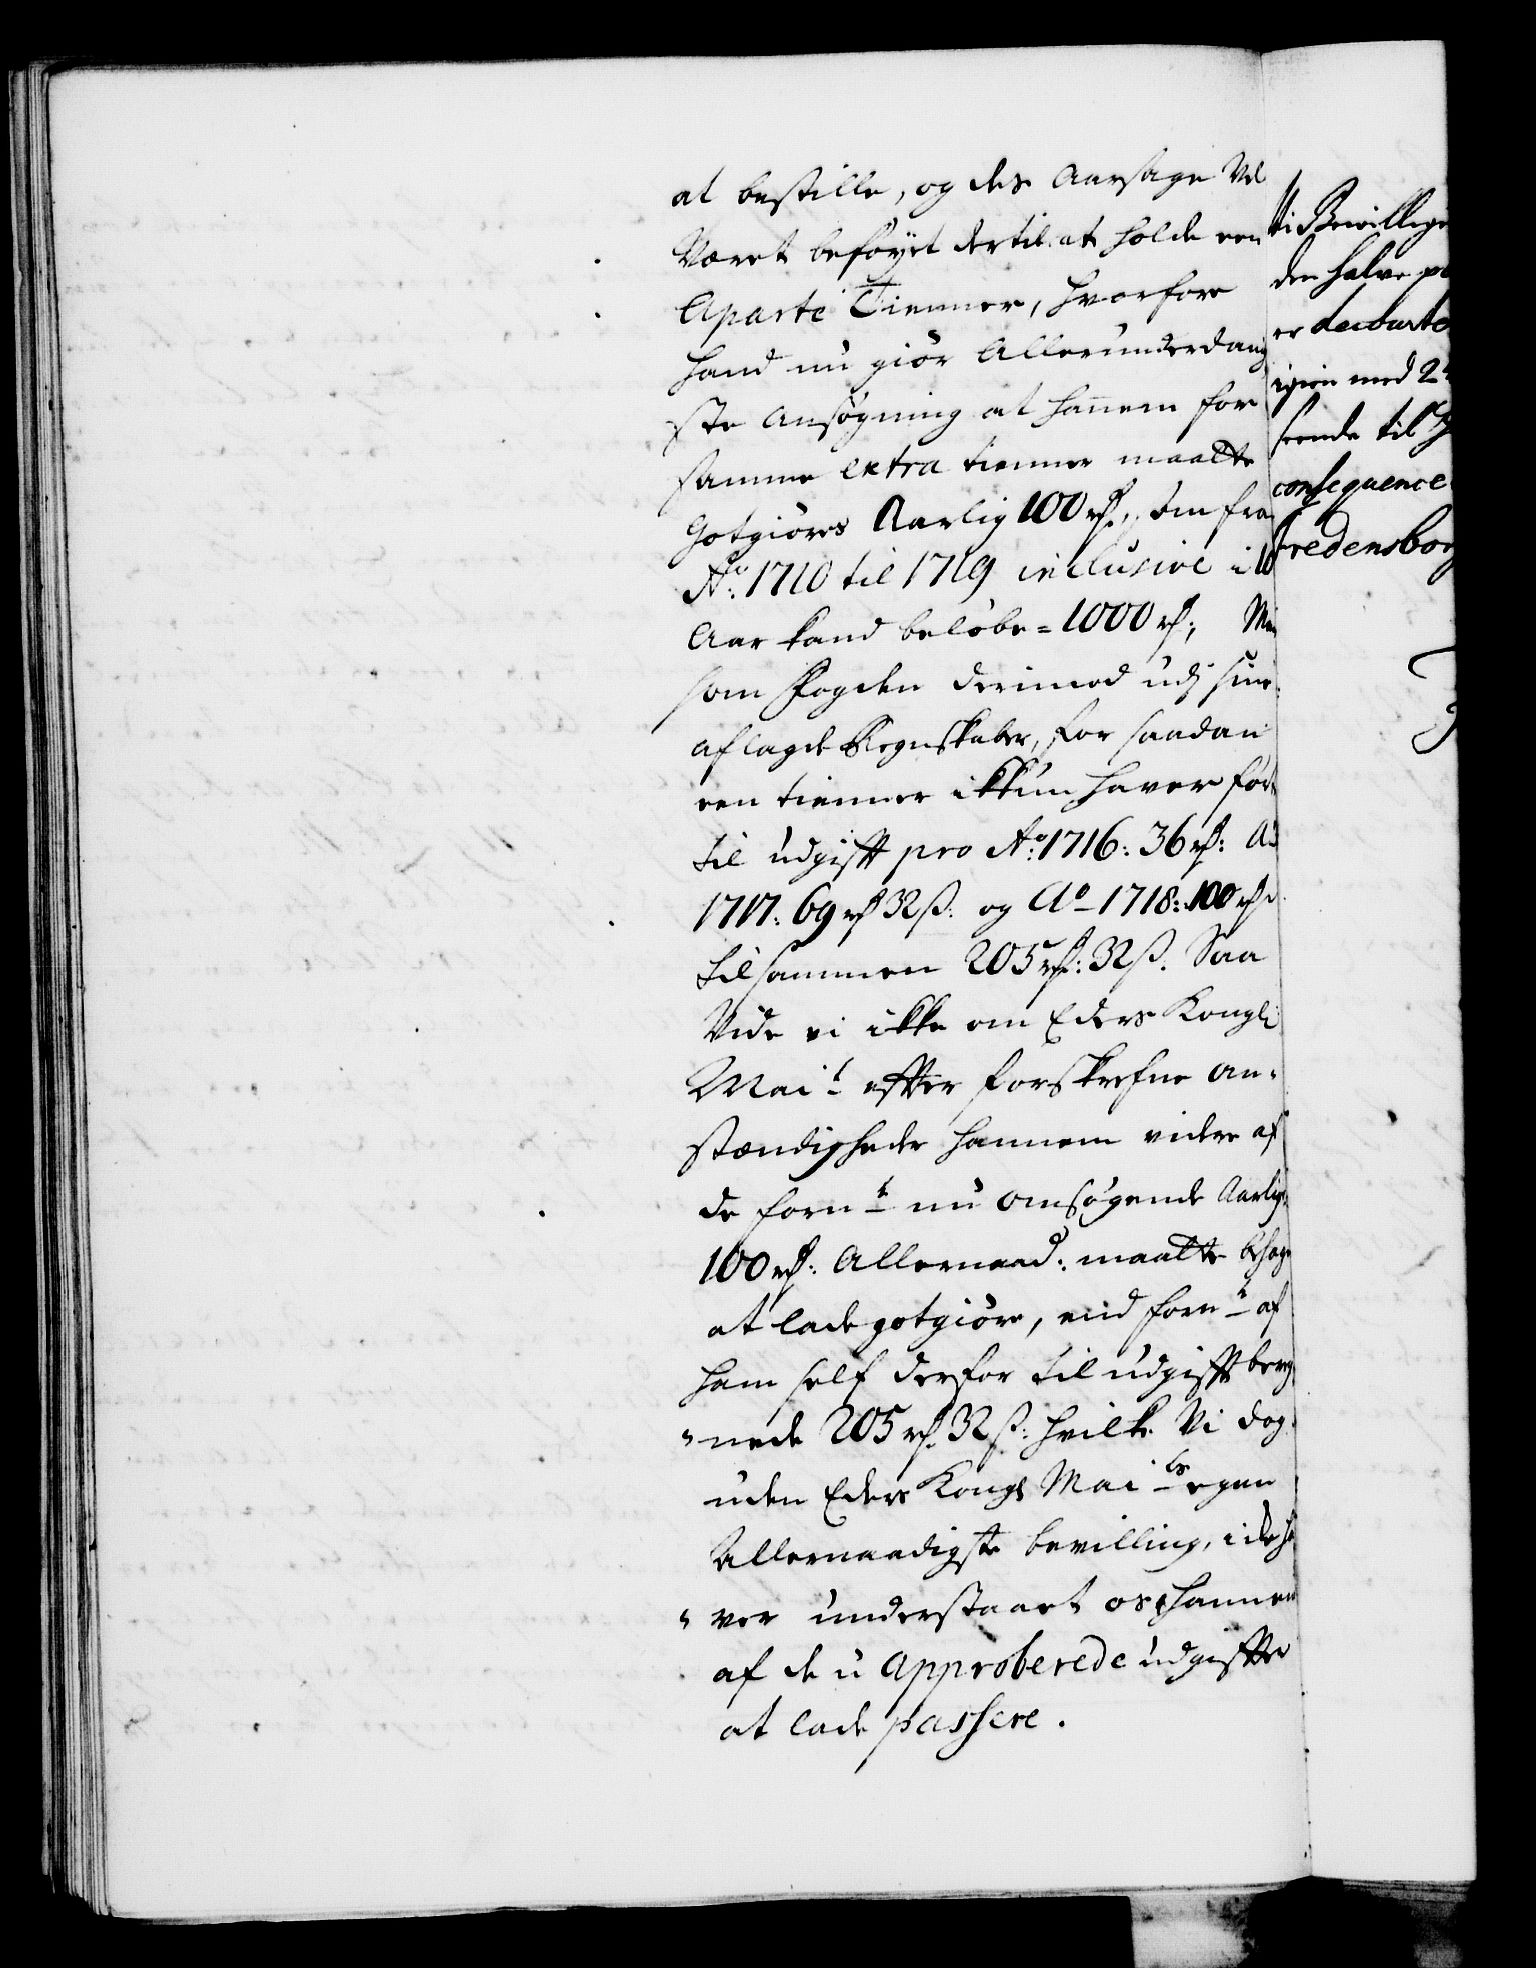 at bestille, og des Aarsage Vel
Været beføyet dertil at holde een
Aparte Tienner, hvorfore
hand nu giør Allerunderdanig
ste Ansøgning at hannem for
samme extra tienner maatte
Gotgiøres Aarlig 100 rd., som fra
Ao: 1710 til 1719 inclusive i 10
Aar kand beløbe = 1000 rd; Men
som Fogden derimod udj sine
aflagde Regnskaber, for saadan
een tienner ikkun haver ført
til udgifft pro Ao: 1716: 36 rd: Ao
1717: 69 rd 32 ß: og Ao 1718: 100 rd
tilsammen 205 rd: 32 ß. Saa
Vide vi ikke om Eders Kongl:
Mait effter forskrefne om-
stændigheder hannem videre af
de fornt nu omsøgende Aarlige
100 rd: Allernaad: maatte behage
at lade gotgiøre, end fornt af
ham self derfor til udgifft bereg
nede 205 rd. 32 ß: hvilke Vi dog
uden Eders Kongl Maits egen
Allernaadigste bevilling, i de ha
ver understaaet os hannem
af de u Approberede udgiffter
at lade passere.
ti Bevillige
den halve
er decourte
igien med
seende til
consequence
Fredensborg